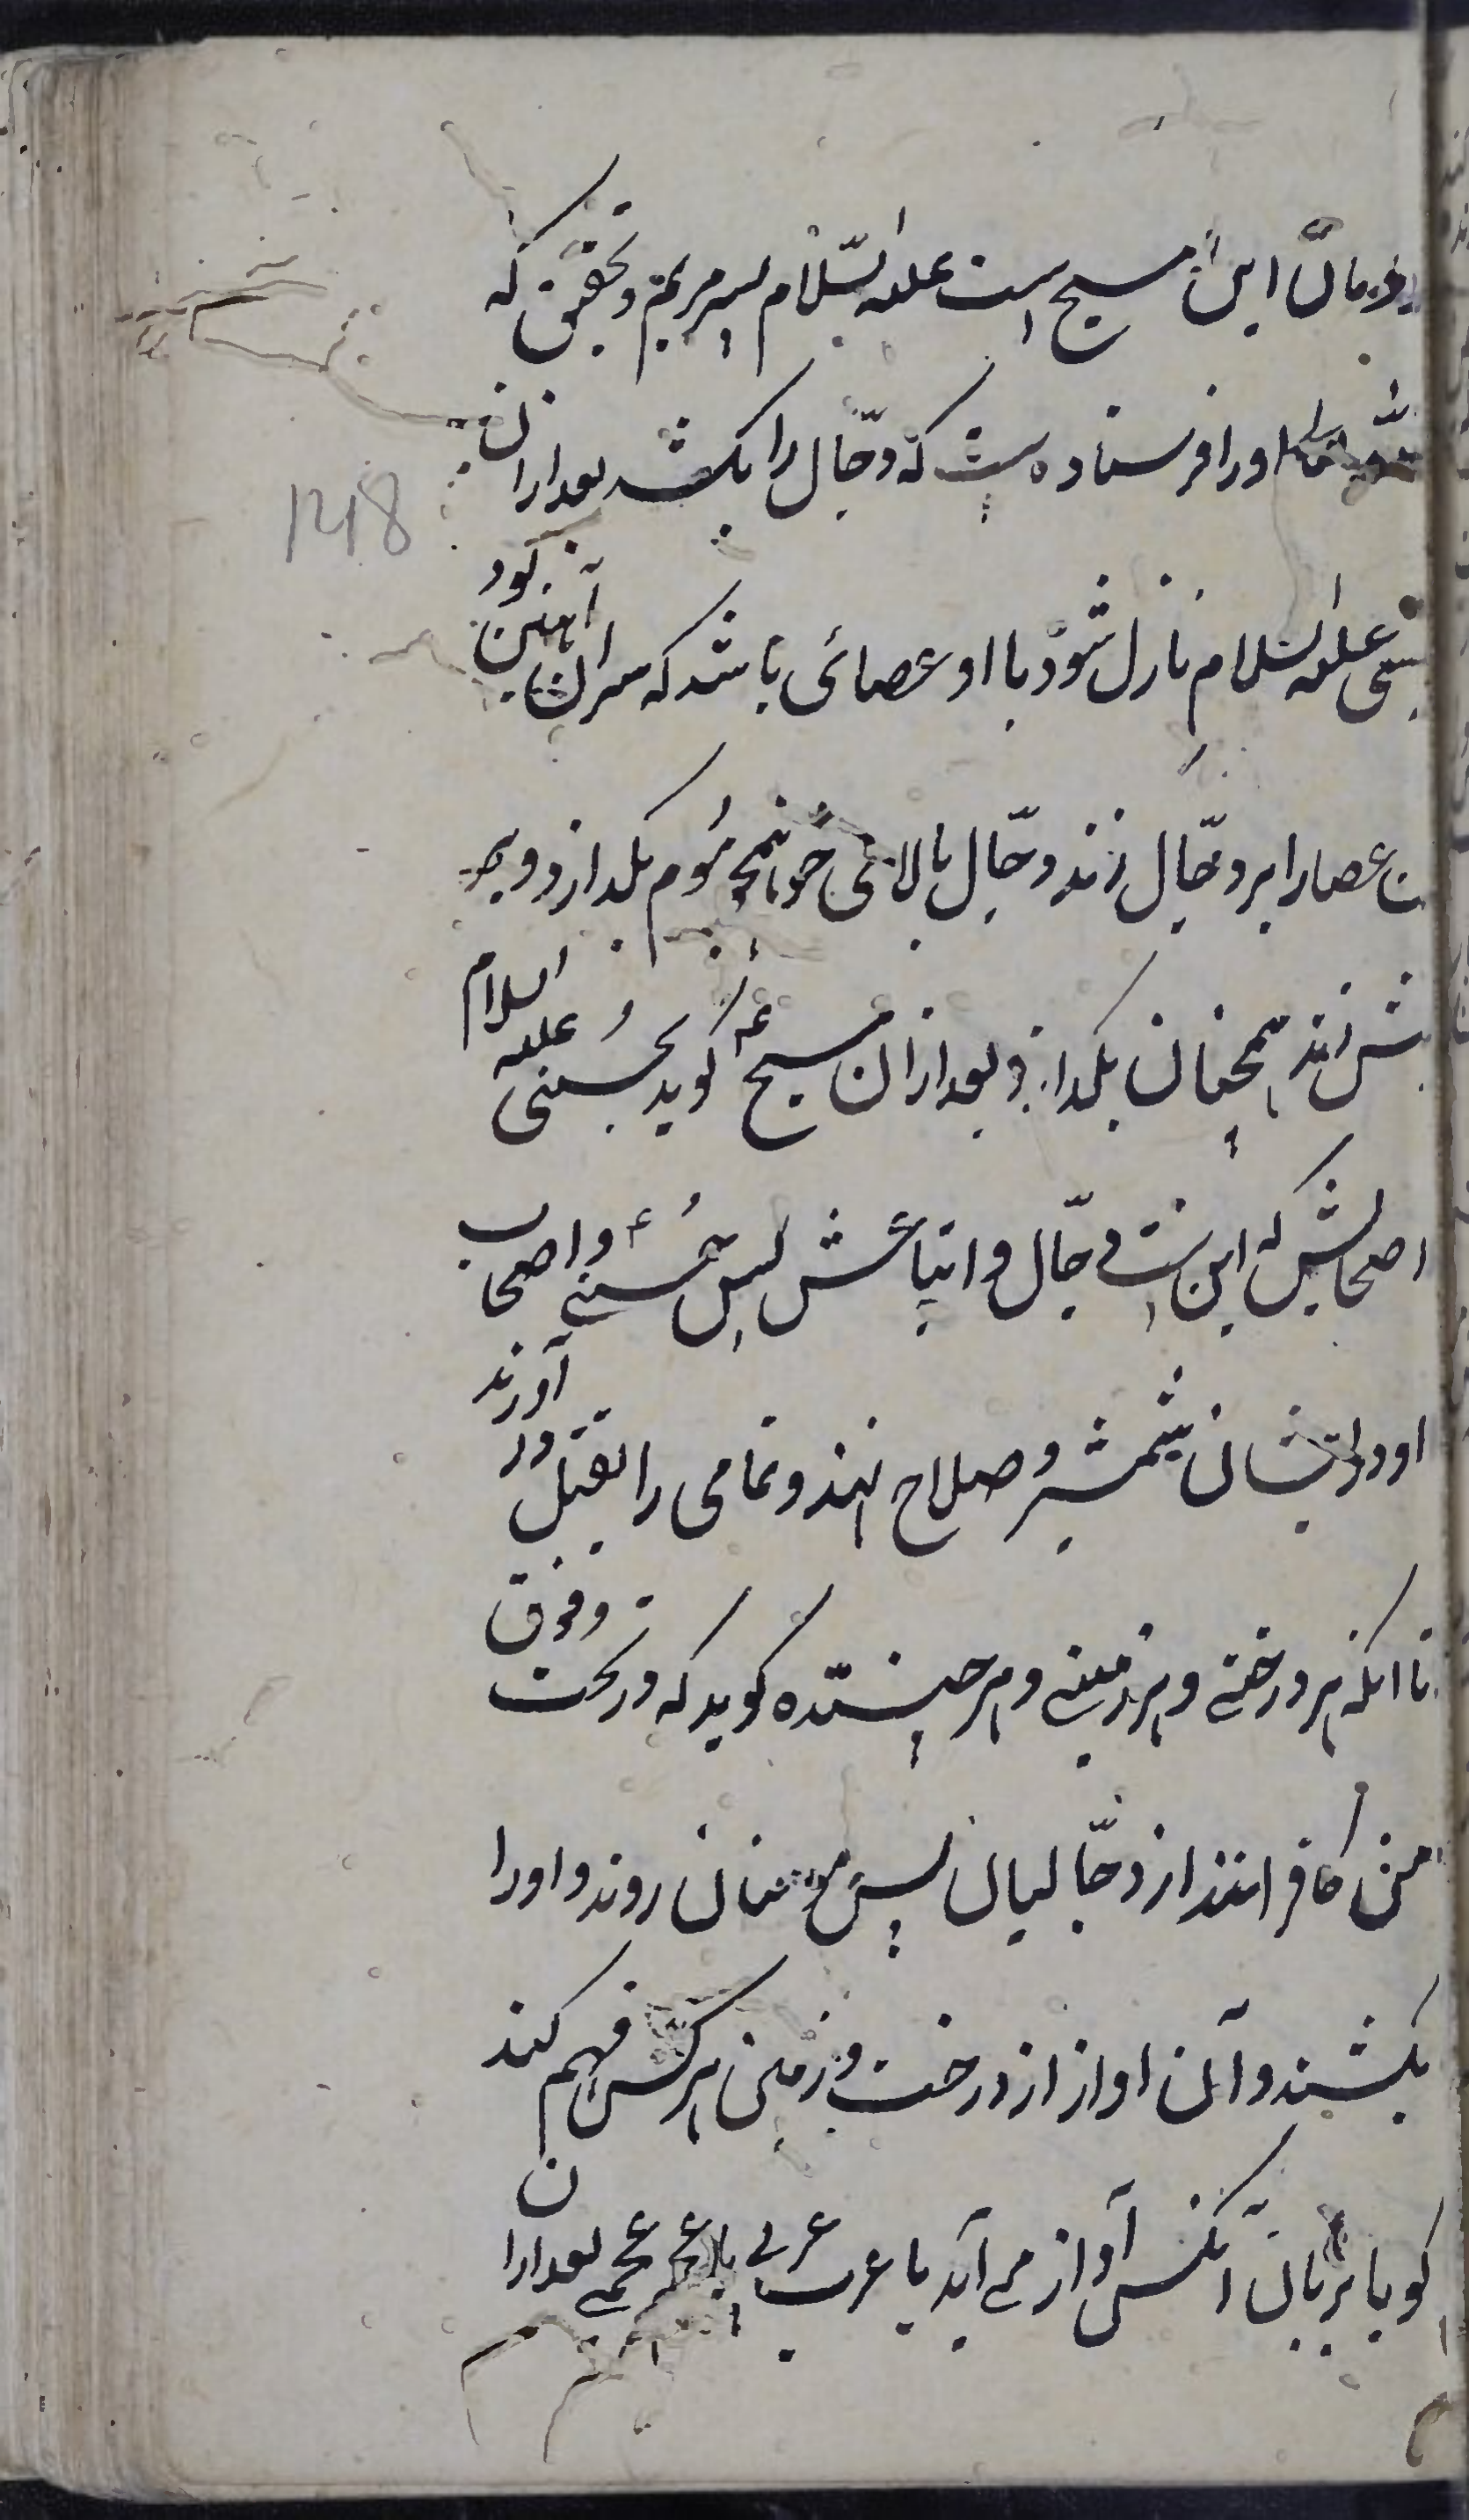 این مسیح است علیه السّلام پسر مریم و تحقیق که
اورا فرستاده است که دجّال را بکشد بعد ازان
علیه السلام نازل شود با او عصائی باشد که سر ان آهنین بود
عصا را بر دجّال زند دجّال بالای خوانچه موم بکدازد و بهر
زند همچنان بکدازد بعد ازان مسیح ع کوید بحسنی علیه السلام
اصحابش که این است دجّال و اتباعش پس حسنی ع و اصحاب
او در ایشان شمشیر و صلاح نهند و تمامی را بقتل در آورند
تا انکه هر درختی و هر زمینی و هر جنبنده کوید که در تحت و فوق
من کافر انند از دجّالیان پس مومنان روند و اورا
بکشند و آن اواز از درخت و زمین هر کس فهم کند
کویا بزبان آنکس آواز می آید با عرب عربی با عجم عجمی بعد ازان
148